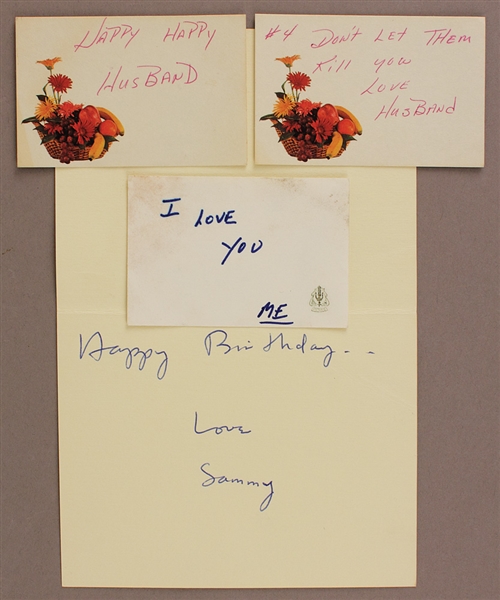 Happy Happy
Husband
#4 Don't Let Them
Kill you
Love
Husband
I Love
You
Me
Happy Birthday...
Love
Sammy